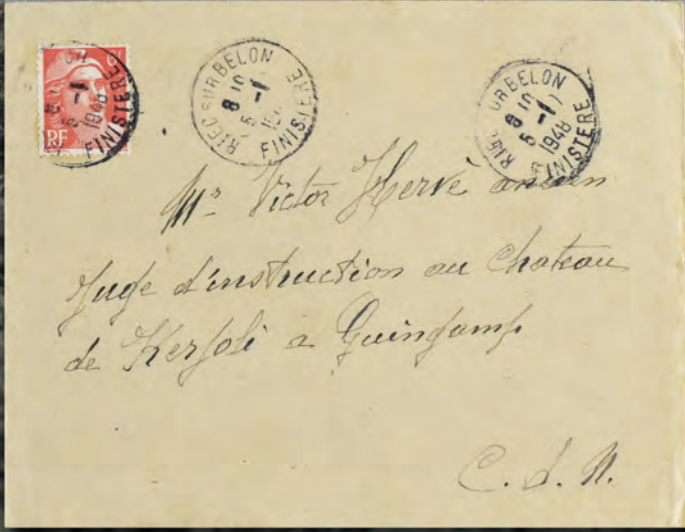 RF
RIEC SUR BELON
8 10
5 -1
1948
FINISTERE
RIEC SUR BELON
8 10
5 -1
1948
FINISTERE
Mr Victor Hervé ancien
Juge d'instruction au Chateau
de Kerjoli a Guingamp
C. d. N.